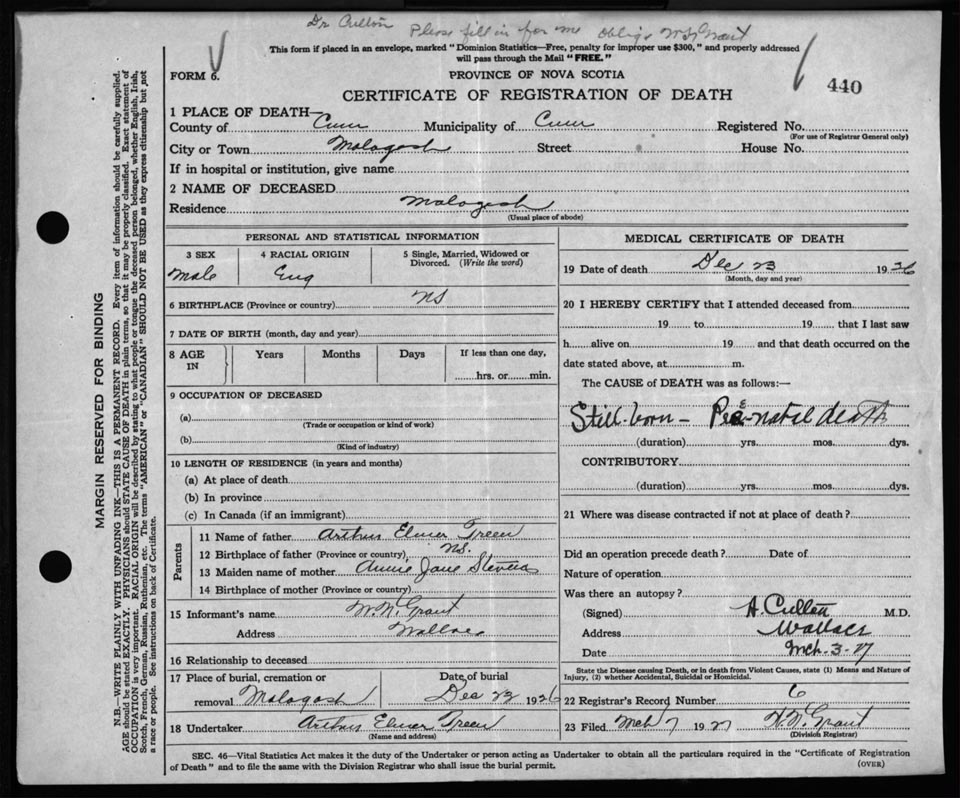 Dr Cullen Please fill in for me oblige W N Grant
This form if placed in an envelope, marked "Dominion Statistics—Free, penalty for improper use $300," and properly addressed
will pass through the Mail "FREE."
FORM 6.
PROVINCE OF NOVA SCOTIA
440
CERTIFICATE OF REGISTRATION OF DEATH
1 PLACE OF DEATH—
County of Cum Municipality of Cum Registered No.
(For use of Registrar General only)
City or Town Malagash Street House No.
If in hospital or institution, give name
2 NAME OF DECEASED
Residence Malagash
(Usual place of abode)
PERSONAL AND STATISTICAL INFORMATION
3 SEX 4 RACIAL ORIGIN 5 Single, Married, Widowed or Divorced. (Write the word)
Male Eng
6 BIRTHPLACE (Province or country) NS
7 DATE OF BIRTH (month, day and year)
8 AGE IN Years Months Days If less than one day,
hrs. or min.
9 OCCUPATION OF DECEASED
(a)
(Trade or occupation or kind of work)
(b)
(Kind of industry)
10 LENGTH OF RESIDENCE (in years and months)
(a) At place of death
(b) In province
(c) In Canada (if an immigrant)
Parents
11 Name of father Arthur Elmer Treen
12 Birthplace of father (Province or country) NS.
13 Maiden name of mother Annie Jane Stevens
14 Birthplace of mother (Province or country)
15 Informant's name W. N. Grant
Address Wallace
16 Relationship to deceased
17 Place of burial, cremation or Date of burial
removal Malagash Dec 23 1926
18 Undertaker Arthur Elmer Treen
(Name and address)
MEDICAL CERTIFICATE OF DEATH
19 Date of death Dec 23 1926
(Month, day and year)
20 I HEREBY CERTIFY that I attended deceased from
19 to 19 that I last saw
h alive on 19 and that death occurred on the
date stated above, at m.
The CAUSE of DEATH was as follows:—
Still-born – Pre-natal death
(duration) yrs. mos. dys.
CONTRIBUTORY
(duration) yrs. mos. dys.
21 Where was disease contracted if not at place of death?
Did an operation precede death? Date of
Nature of operation
Was there an autopsy?
(Signed) A. Cullen M.D.
Address Wallace
Date Mch-3-27
State the Disease causing Death, or in death from Violent Causes, state (1) Means and Nature of
Injury, (2) whether Accidental, Suicidal or Homicidal.
22 Registrar's Record Number 6
23 Filed Mch 7 1927 W. N. Grant
(Division Registrar)
SEC. 46—Vital Statistics Act makes it the duty of the Undertaker or person acting as Undertaker to obtain all the particulars required in the "Certificate of Registration
of Death" and to file the same with the Division Registrar who shall issue the burial permit.
(OVER)
MARGIN RESERVED FOR BINDING
N.B.—WRITE PLAINLY WITH UNFADING INK—THIS IS A PERMANENT RECORD. Every item of information should be carefully supplied.
AGE should be stated EXACTLY. PHYSICIANS should STATE CAUSE OF DEATH in plain terms, so that it may be properly classified. Exact statement of
OCCUPATION is very important. RACIAL ORIGIN will be described by stating to what people or tongue the deceased person belonged, whether English, Irish,
Scotch, French, German, Russian, Ruthenian, etc. The terms "AMERICAN" or "CANADIAN" SHOULD NOT BE USED as they express citizenship but not
a race or people. See instructions on back of Certificate.